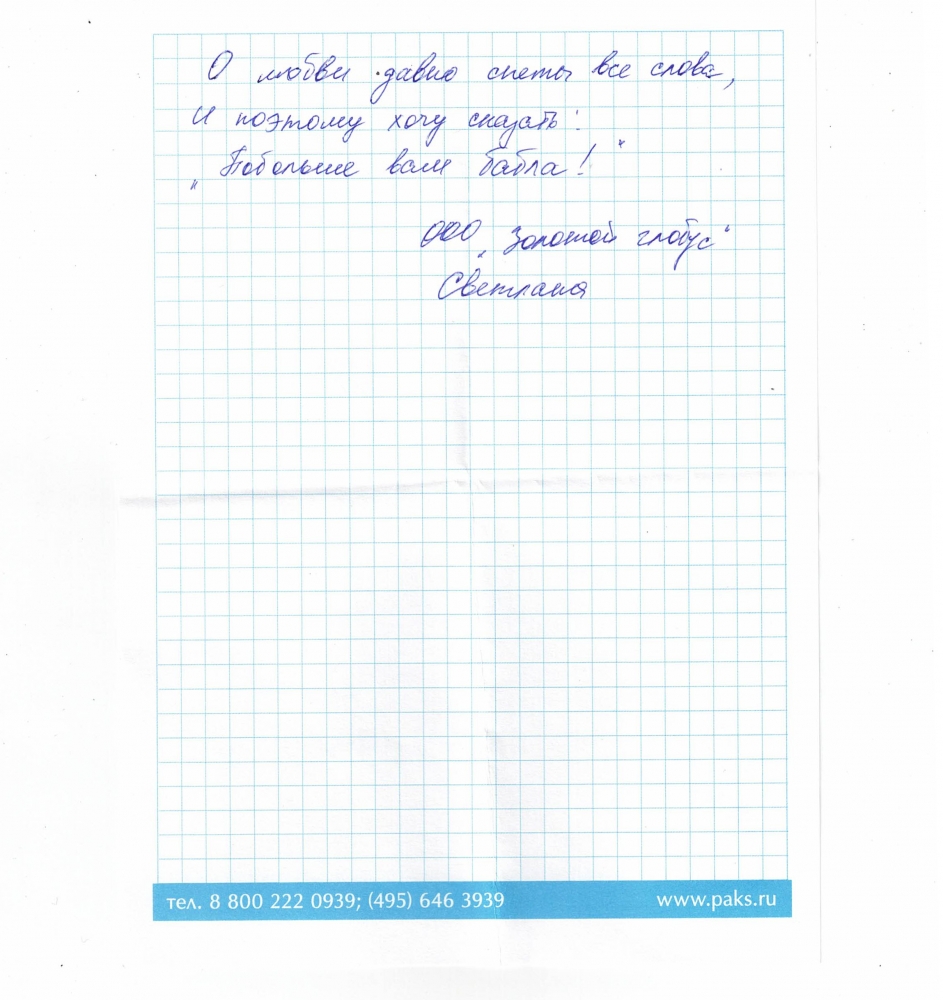 О любви давно спеты все слова,
И поэтому хочу сказать:
„Побольше вам бабла!"
ООО „Золотой глобус"
Светлана
тел. 8 800 222 0939; (495) 646 3939 www.paks.ru